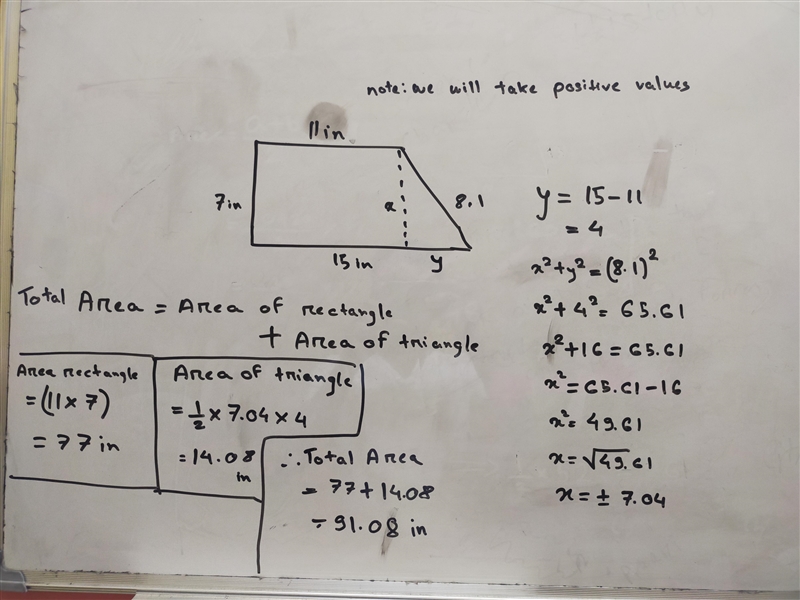 note: we will take positive values
11 in
7 in
x
8.1
15 in
y
y = 15 - 11
= 4
x² + y² = (8.1)²
x² + 4² = 65.61
x² + 16 = 65.61
x² = 65.61 - 16
x² = 49.61
x = √49.61
x = ± 7.04
Total Area = Area of rectangle
+ Area of triangle
Area rectangle
= (11 × 7)
= 77 in
Area of triangle
= 1/2 × 7.04 × 4
= 14.08
in
∴ Total Area
= 77 + 14.08
= 91.08 in